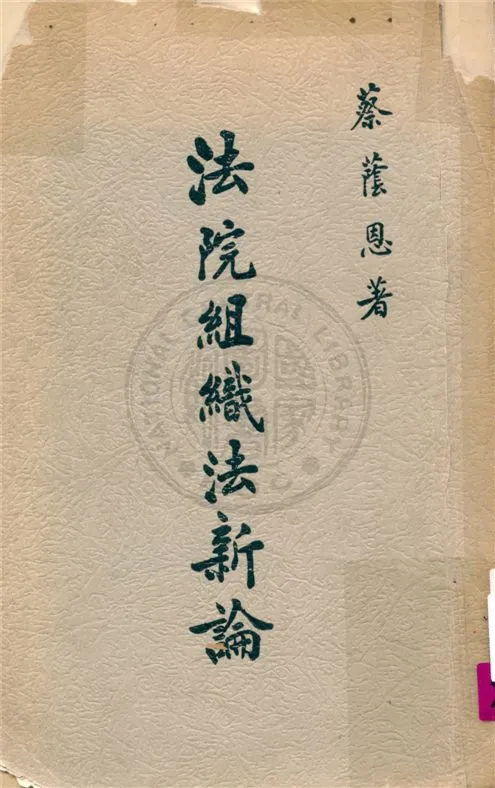 蔡蔭恩著
法院組織法新論
NATIONAL CENTRAL LIBRARY